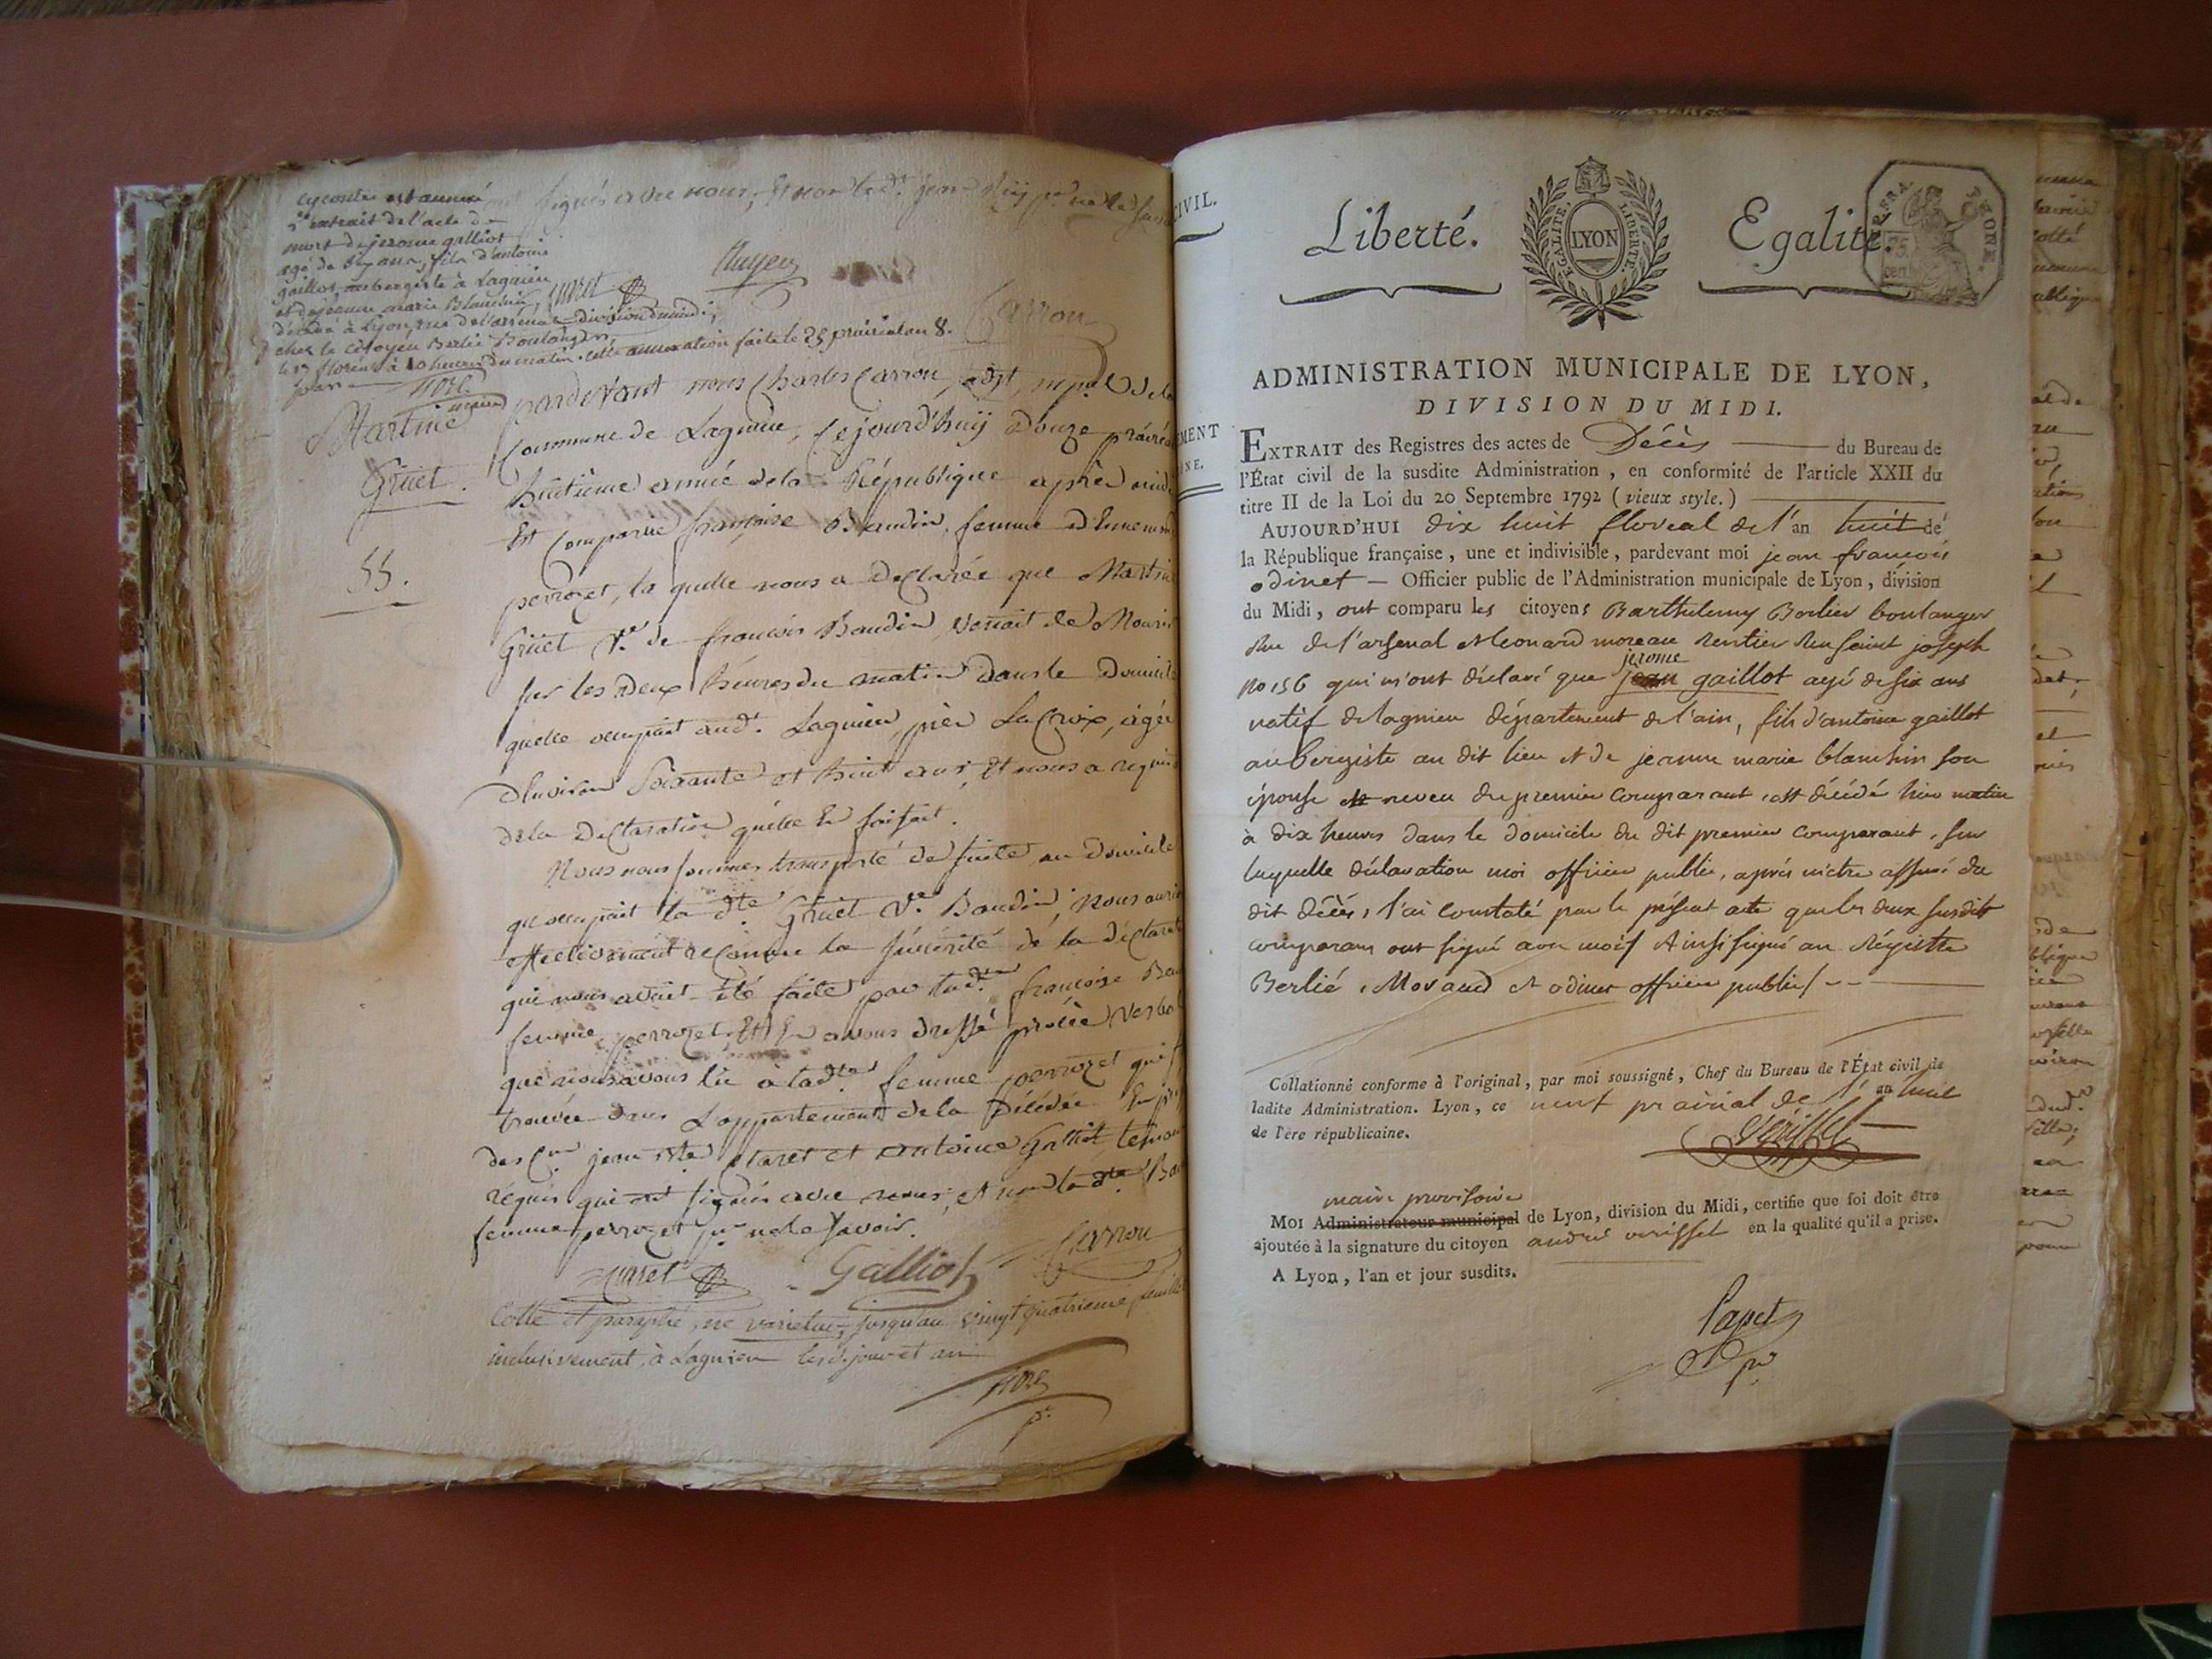 cy contre est annexé
l'extrait de l'acte de
mort de jerome galliot
agé de six ans, fils d'antoine
gaillot aubergiste à Lagnieu
et de jeanne marie Blanchin,
décédé à Lyon, rue de l'arsenal division du midi,
chez le citoyen Berlié Boulanger,
le 17 floréal à 10 heures du matin. cette annexation faite le 25 prairial an 8.
par
maire
signés avec nous, et non led. jean
Carron
Martine
Gruet.
55.
pardevant nous Charles Carron, adjt. mpal de la
Commune de Lagnieu, Cejourd'huy Douze prairial
huitieme année de la République après midi
Est Comparüe françoise Baudin, femme d'Ennemond
perrozet, la quelle nous a declarée que Martine
Grüet Ve. de francois Baudin venait de Mourir
sur les deux heures du matin dans le Domicile
quelle occupait aud. Lagnieu, près La Croix, agée
d'Environ Soixante et huit ans et nous a requis
de la Declaration quelle En faisait.
Nous nous sommes transporté de suite au Domicile
qu'occupait la dte. Gruet Ve. Baudin, Nous avons
effectivement reconnu la sincérité de la déclaration
qui nous avait été faite par lad.te françoise Bau
femme perrozet, Et En avons dressé procès verbal
que nous avons lu à lad.te femme perrozet qui s
trouvée dans L'appartement de la Décédée En p
des Cens jean Claret et antoine Galliot, temoins
réquis qui ont signés avec nous, et non la dte. Bau
femme perrozet pr. ne le savoir.
Claret Galliot Carron
Cotté et paraphé, ne varietur, jusqu'au vingt quatrieme feuillet
inclusivement, à Lagnieu les d. jour et an
CIVIL.
EMENT
INE.
Liberté. Egalité.
EGALITÉ. LYON LIBERTÉ.
75. cent.
ADMINISTRATION MUNICIPALE DE LYON,
DIVISION DU MIDI.
EXTRAIT des Registres des actes de Décès du Bureau de
l'État civil de la susdite Administration, en conformité de l'article XXII du
titre II de la Loi du 20 Septembre 1792 (vieux style.)
AUJOURD'HUI dix huit floreal de l'an huit de
la République française, une et indivisible, pardevant moi jean francois
odinet — Officier public de l'Administration municipale de Lyon, division
du Midi, ont comparu les citoyens Barthelemy Berlier boulanger
Rue de l'arsenal et Leonard moreau rentier Rue saint joseph
jerome
no 156 qui m'ont déclaré que jean gaillot agé de six ans
natif de lagnieu département de l'ain, fils d'antoine gaillot
aubergiste au dit lieu et de jeanne marie blanchin son
épouse et neveu du premier comparant, est décédé hier matin
à dix heures dans le domicile du dit premier comparant, sur
laquelle déclaration moi officier public, après m'etre assuré du
dit décès, l'ai constaté par le présent acte que les deux susdits
comparans ont signé avec moi / Ainsi signé au Régistre
Berlié, Moraud et odinet officier public /
Collationné conforme à l'original, par moi soussigné, Chef du Bureau de l'État civil de
ladite Administration. Lyon, ce neuf prairial de l'an huit
de l'ère républicaine.
maire provisoire
MOI Administrateur municipal de Lyon, division du Midi, certifie que foi doit être
ajoutée à la signature du citoyen andré verisset en la qualité qu'il a prise.
A Lyon, l'an et jour susdits.